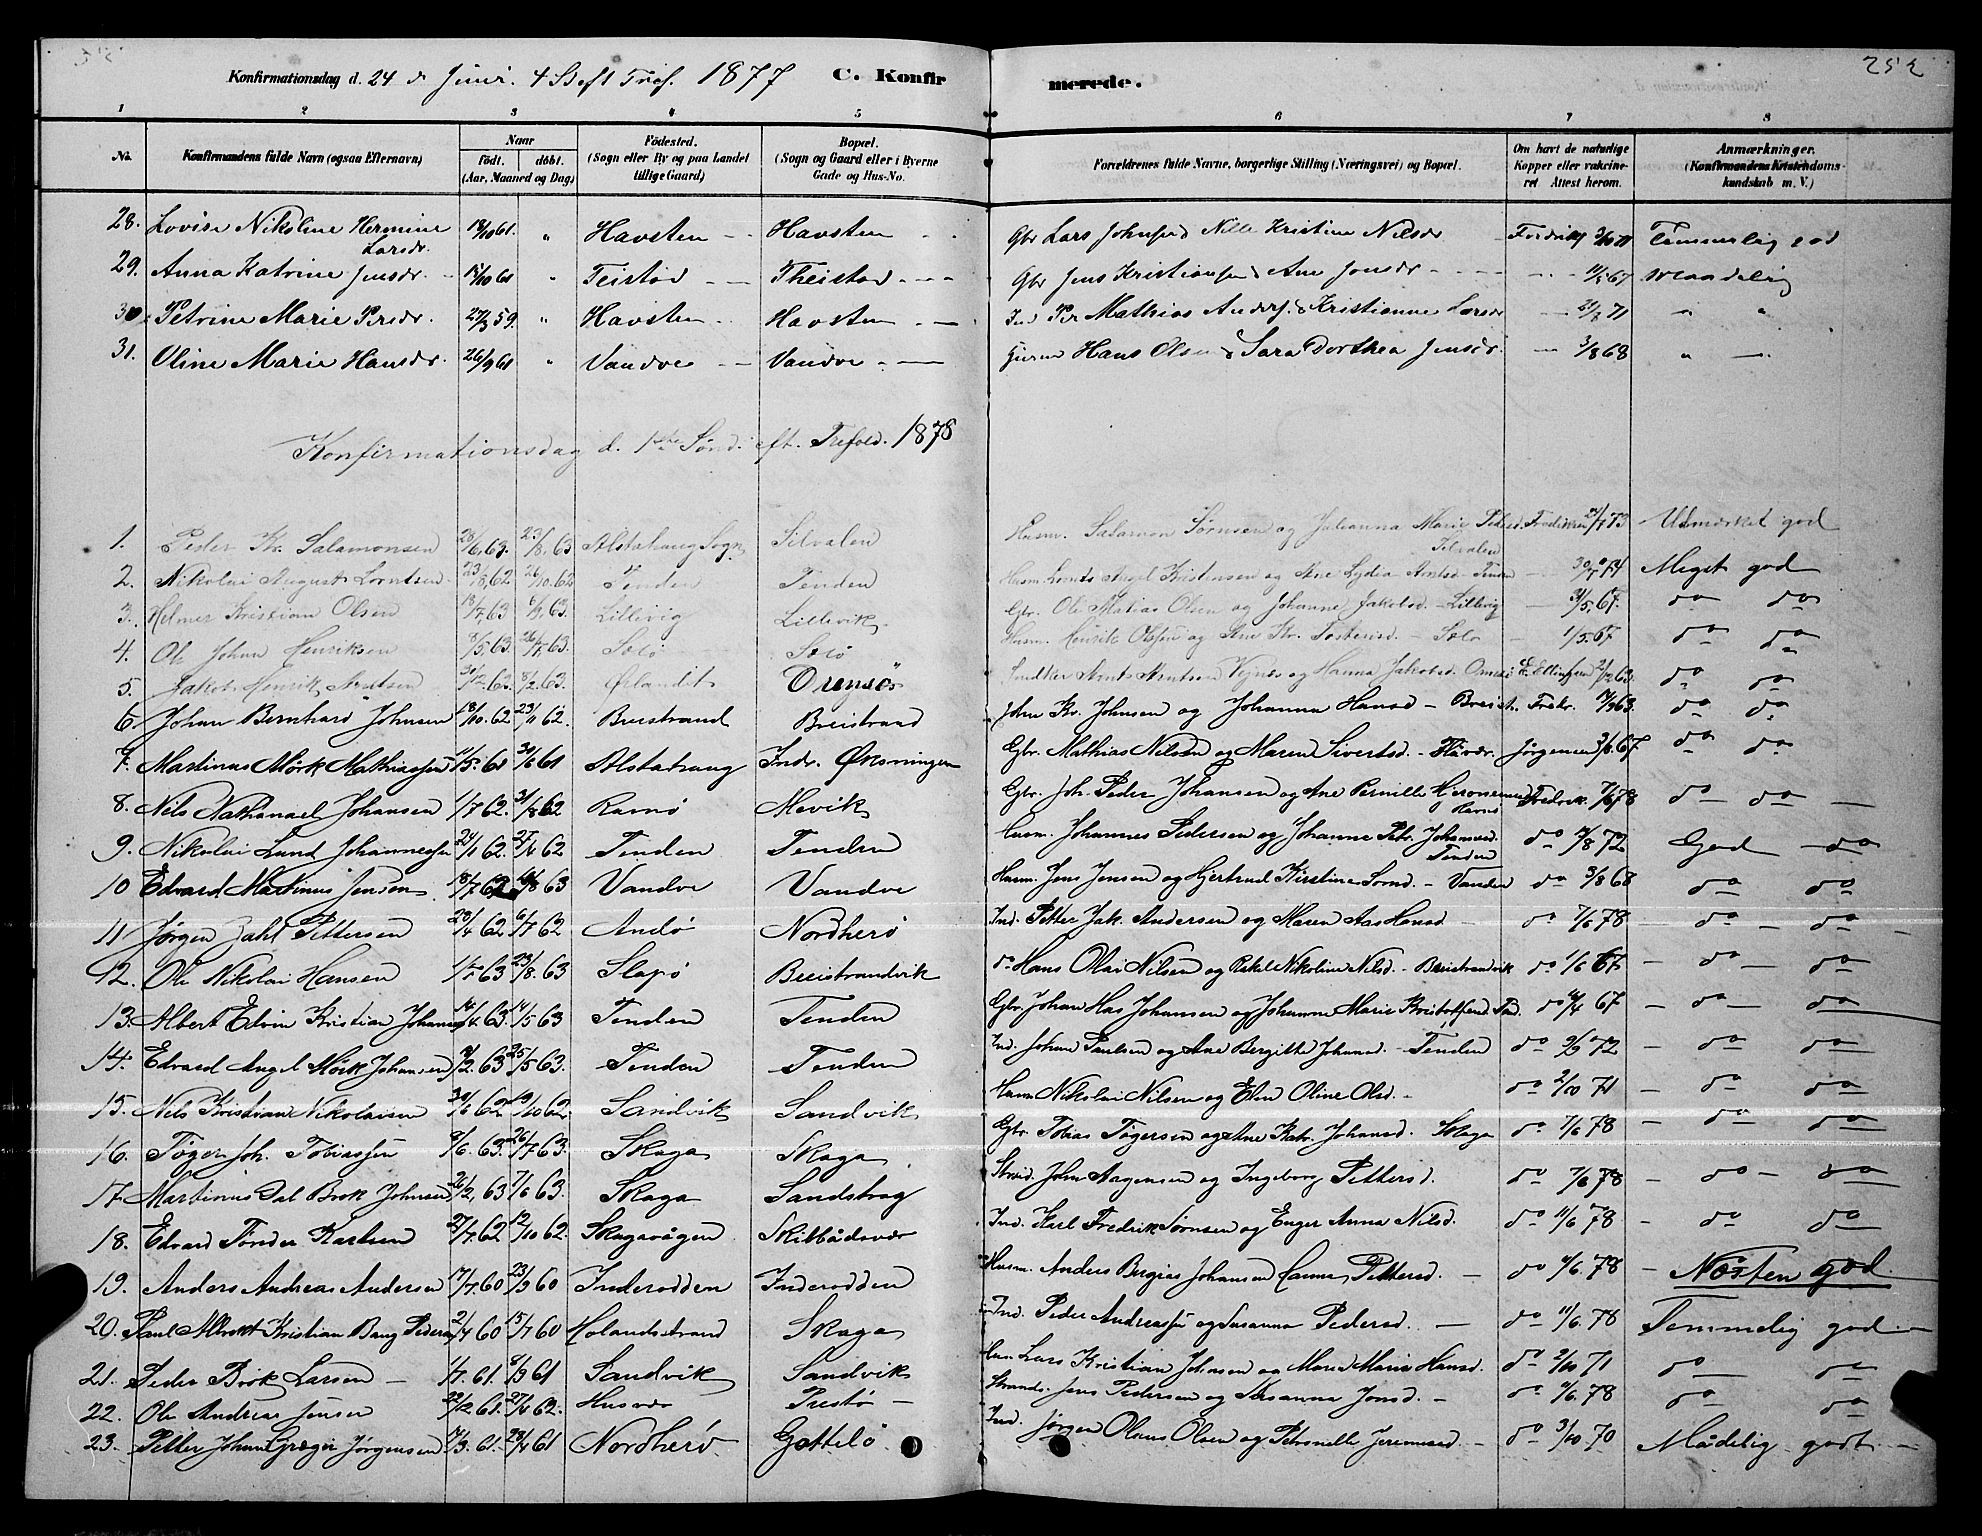 Konfirmationsdag d. 24 de Juni. 4 S. eft Tref. 1877 C. Konfirmerede. 252
1 2 3 4 5 6 7 8
No. Konfirmandens fulde Navn (ogsaa Efternavn) Naar födt. döbt. (Aar, Maaned og Dag) Födested. (Sogn eller By og paa Landet tillige Gaard) Bopæl. (Sogn og Gaard eller i Byerne Gade og Hus-No. Forældrenes fulde Navne, borgerlige Stilling (Næringsvei) og Bopæl. Om havt de naturlige Kopper eller vakcineret Attest herom. Anmærkninger. (Konfirmandens Kristendomskundskab m. V.)
28. Lovise Nikoline Hermine Larsdr. 18/10 61. " Havsten Havsten Gbr Lars Johnsen & Kristine Nilsdr Fredriks 3/10 71 Temmerlig god
29. Anna Katrine Jensdr. 15/10 61 " Teistad Theistad Gbr Jens Kristiansen & Ane Jonsdr 11/5 67 maadelig
30. Petrine Marie Pedr. 27/3 59. " Havsten Havsten Ind Per Mathias Anders. & Kristianne Larsdr 21/7 71 " "
31. Oline Marie Hansdr. 26/9 61 " Vandve Vandve Hans Olsen & Sara Dorthea Jensdr. 3/8 68 "
Konfirmationsdag d. 1ste Sönd. eft. Trefold. 1878
1. Peder Kr. Salamonsen 28/6 63. 23/8 63 Alstahaug Sogn Silvalen Husm. Salamon Sörnsen og Julianna Marie Pedersd. Silvalen Fredriksen 24/7 73 Udmærket god
2. Nikolai August Lorntsen 23/8 62 26/10 62 Tenden Tenden Husm. Lornts Angel Kristensen og Ane Lydia Arntsd - Tenden 30/7 74 Meget god
3. Helmer Kristian Olsen 18/7 63 6/9 63. Lillevig Lillevik Gbr. Ole Matias Olsen og Johanne Jakobsd - Lillevig 31/5 67. do do
4. Ole Johan Henriksen 8/5 63. 26/7 63. Solö Solö Husm. Henrik Olsen og Ane Kr. Tostensd. - Solö 1/5 67 do do
5. Jakob Henrik Arntsen 30/12 62 8/2 63. Ørlandet Orensö Arnt Arntsen Vignes og Hanna Jakobsd. Ellingsen 63. do do
6. Johan Bernhard Johnsen 18/10 62 23/11 62. Breistrand Breistrand John Kr. Johnsen og Johanna Hansd - Breist. Fredr. 63. do do
7. Martinus Mörk Mathiassen 11/5 61 30/6 61 Alstahaug Indr. Øksningen Gbr. Mathias Nilsen og Maren Sivertsd. - Flövær Jörgensen 3/6 67 do do
8. Nils Nathanael Johansen 1/7 62. 31/8 62 Ramö Mevik Gbr. Joh. Peder Johansen og Ane Pernille Hjeronemusd Ramö Fredrik. 7/6 78 do do
9. Nikolai Lund Johannessen 24/1 62. 27/4 62 Tenden Tenden Husm. Johannes Pedersen og Johanne Petr. Johannesd. Tenden do 11/8 72 God do
10 Edvard Martinus Jensen 18/7 62 /8 63 Vandve Vandve Husm. Jens Jensen og Hjertrud Kirstine Sornd. - Vanden do 3/8 68 do do
11 Jörgen Zahl Pettersen 20/4 62 6/7 62 Andö Nordherö Ind. Petter Jak. Andersen og Maren Aas Hansd do 7/6 78 do do
12. Ole Nikolai Hansen 1/5 63 23/8. 63 Slapö Breistrandvik do Hans Olai Nilsen og Rakel Nikoline Nilsd. - Breistrandvik do 1/6 67 do do
13. Albert Edvin Kristian Johansen 14/4 63. 14/5 63 Tenden Tenden Gbr. Johan Has Johansen og Johanne Marie Kristoffersd. Ten. do 11/4 67 do do
14. Edvard Angel Mörk Johansen /2 63 25/5 63. Tenden Tenden Ind. Johan Paulsen og Ane Bergitte Johansd. - Tenden do 9/9 72 do do
15. Nils Kristian Nikolaisen 30/6 62 19/10 62. Sandvik Sandvik Husm Nikolai Nilsen og Elen Oline Olsd. - do 2/10 71 do do
16. Töger Joh. Tobiassen 8/6. 63. 26/7 63. Skaga Skaga Gbr. Tobias Tögersen og Ane Katr. Johansd. Skaga do 7/6 78 do do
17 Martinus Dal Brok Johnsen 26/2 63 7/6 63. Skaga Sandstrag Strand. John Aagensen og Ingeborg Pettersd. do 7/6 78 do do
18. Edvard Tönder Karlsen 27/7 62 12/10 62. Skagavågen Skibbådsvær Ind. Karl Fredrik Sörnsen og Enger Anna Nilsd. do 11/6 78 do do
19. Anders Andreas Andersen 17/7 60 23/9 60 Inderodden Inderodden Husm. Anders Birgias Johansen Hanna Pettersd. do 11/6 78 Næsten god
20. Paul Albrekt Kristian Bang Pedersen 2/4 60 15/7 60 Holandsstrand Skaga Ind. Peder Andreassen og Susanna Pedersd. do 11/6 78 Temmelig god
21. Peder Brok Larsen 1/7. 61. 8/9 61 Sandvik Sandvik Husm Lars Kristian Johnsen og Maren Maria Hansd. do 2/10 71 do do
22. Ole Andreas Jensen 22/12 61. 27/4 62. Husvær Prestö Strands. Jens Pedersen og Susanna Jonsd. do 11/6 78 do do
23. Petter Johan Græger Jörgensen 17/3. 61. 28/4 61 Nordherö Gåttelö Ind. Jörgen Olaus Olsen og Petronelle Jeremiasd. do 3/10 70 Mådelig godt